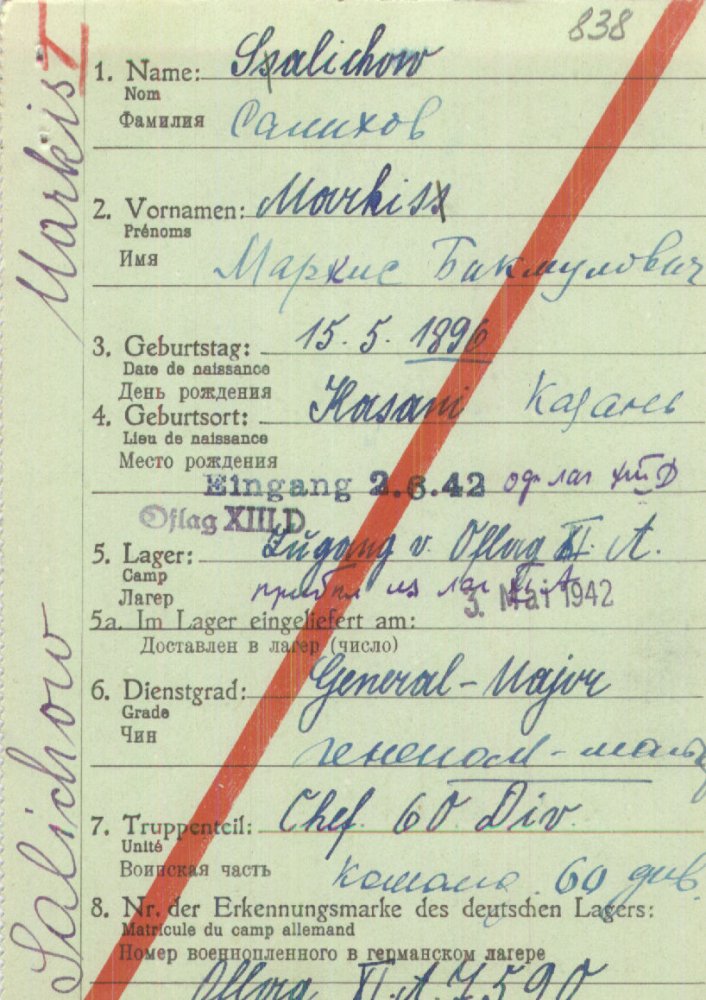 838
Markis I
Salichow
1. Name: Szalichow
Nom
Фамилия Салихов
2. Vornamen: Markiss
Prénoms
Имя Маркис Бикмулович
3. Geburtstag: 15. 5. 1896
Date de naissance
День рождения
4. Geburtsort: Kasani Казань
Lieu de naissance
Место рождения
Eingang 2.6.42 оф лаг XIII D
Oflag XIII D
5. Lager: Zugang v. Oflag XI. A.
Camp
Лагер прибыл из лаг XI A
3. Mai 1942
5a. Im Lager eingeliefert am:
Доставлен в лагер (число)
6. Dienstgrad: General-Major
Grade
Чин
7. Truppenteil: Chef. 60 Div.
Unité
Воинская часть команд. 60 див.
8. Nr. der Erkennungsmarke des deutschen Lagers:
Matricule du camp allemand
Номер военнопленного в германском лагере
Oflag XI. A. 7590